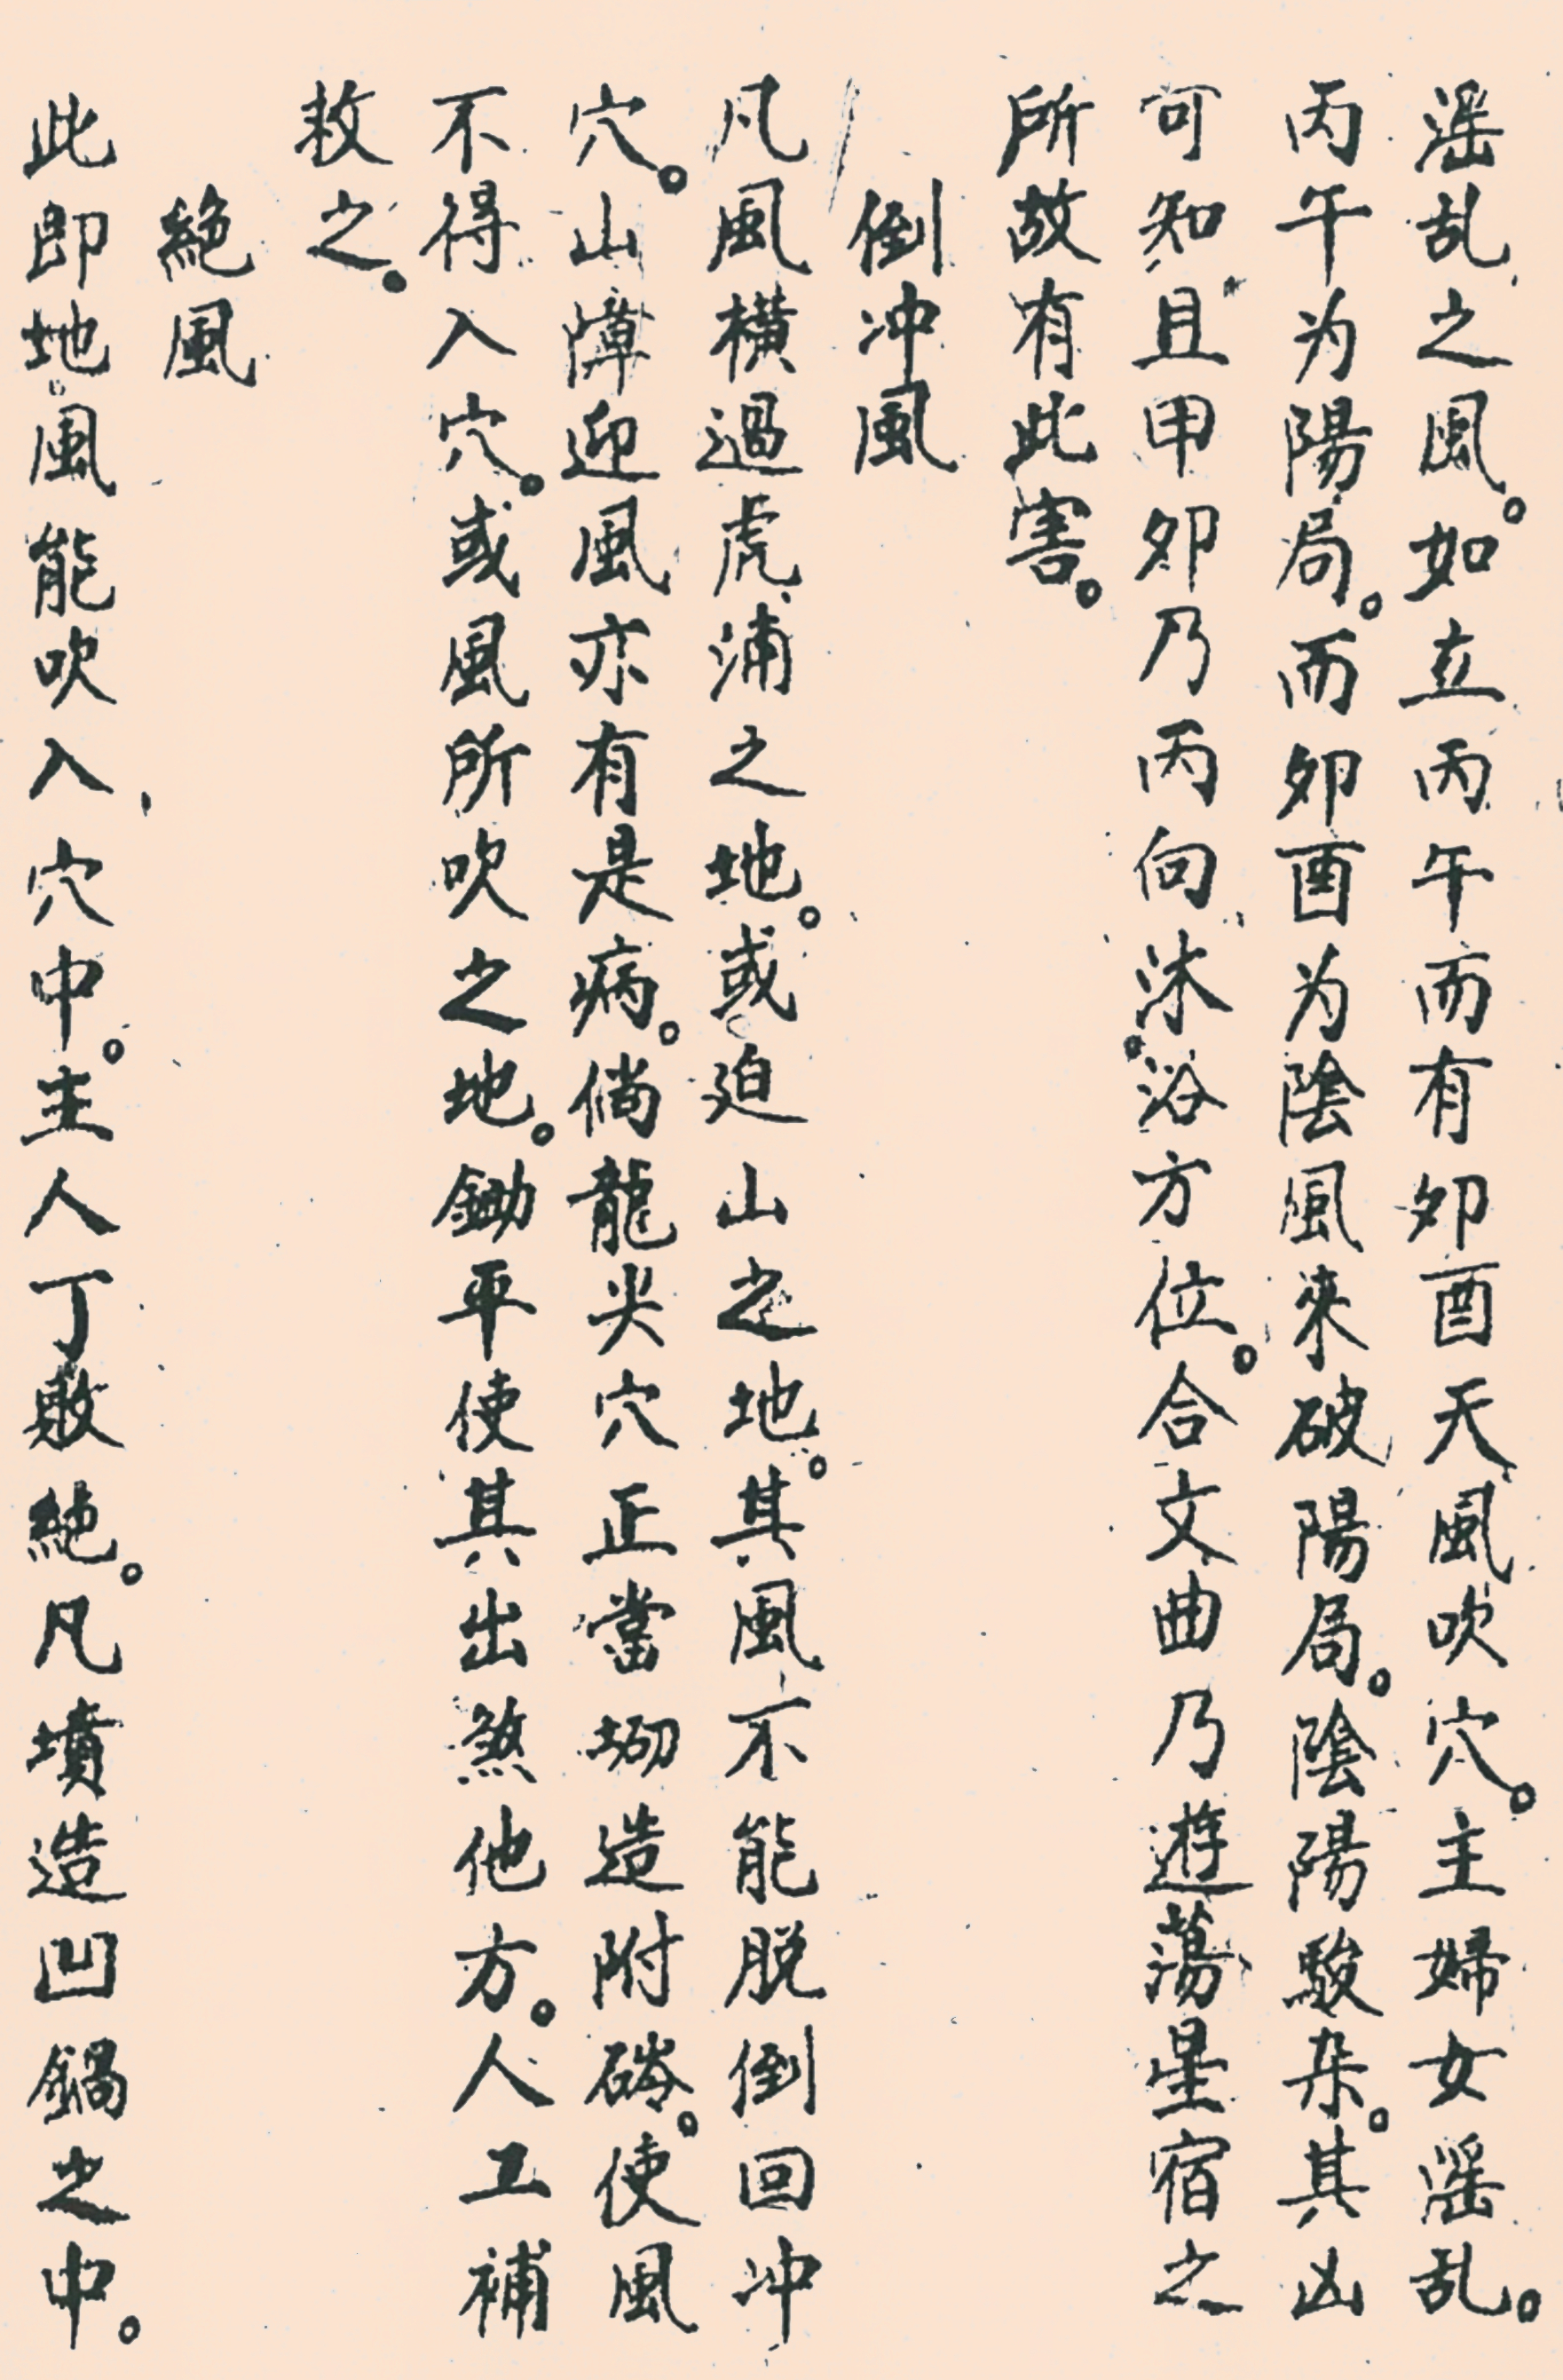 滛乱之風。如立丙午而有夘酉天風吹穴。主婦女滛乱。
丙午为陽局。而夘酉为陰風來破陽局。陰陽駁杂。其凶
可知且甲夘乃丙向沐浴方位。合文曲乃遊蕩星宿之
所故有此害。
倒冲風
凡風橫過虎浦之地。或迫山之地。其風不能脱倒回冲
穴。山障迎風亦有是病。倘龍尖穴正當坳造附硶。使風
不得入穴。或風所吹之地。鋤平使其出煞他方。人工補
救之。
絕風
此即地風能吹入穴中。主人丁敗絕。凡墳造凹鍋之中。